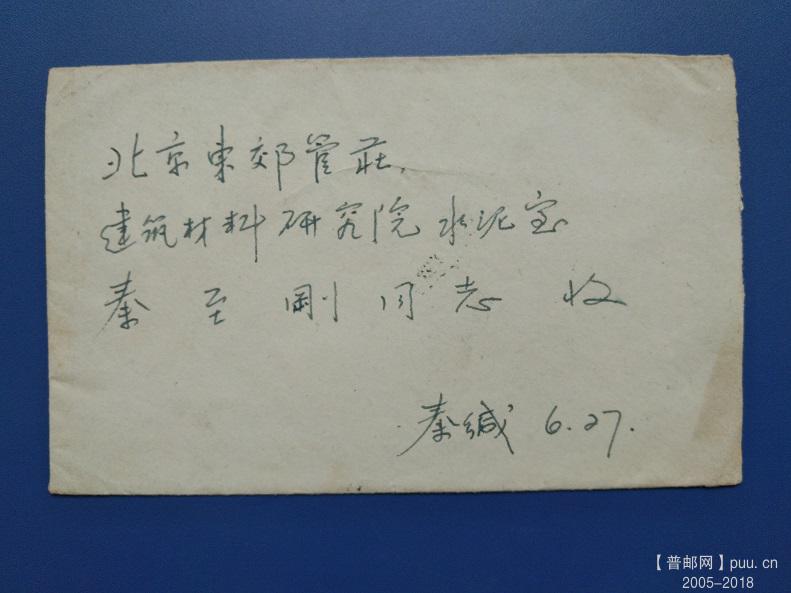 北京東郊管莊
建筑材料研究院水泥室
秦至剛同志 收
秦缄 6.27.
【普邮网】puu.cn
2005-2018